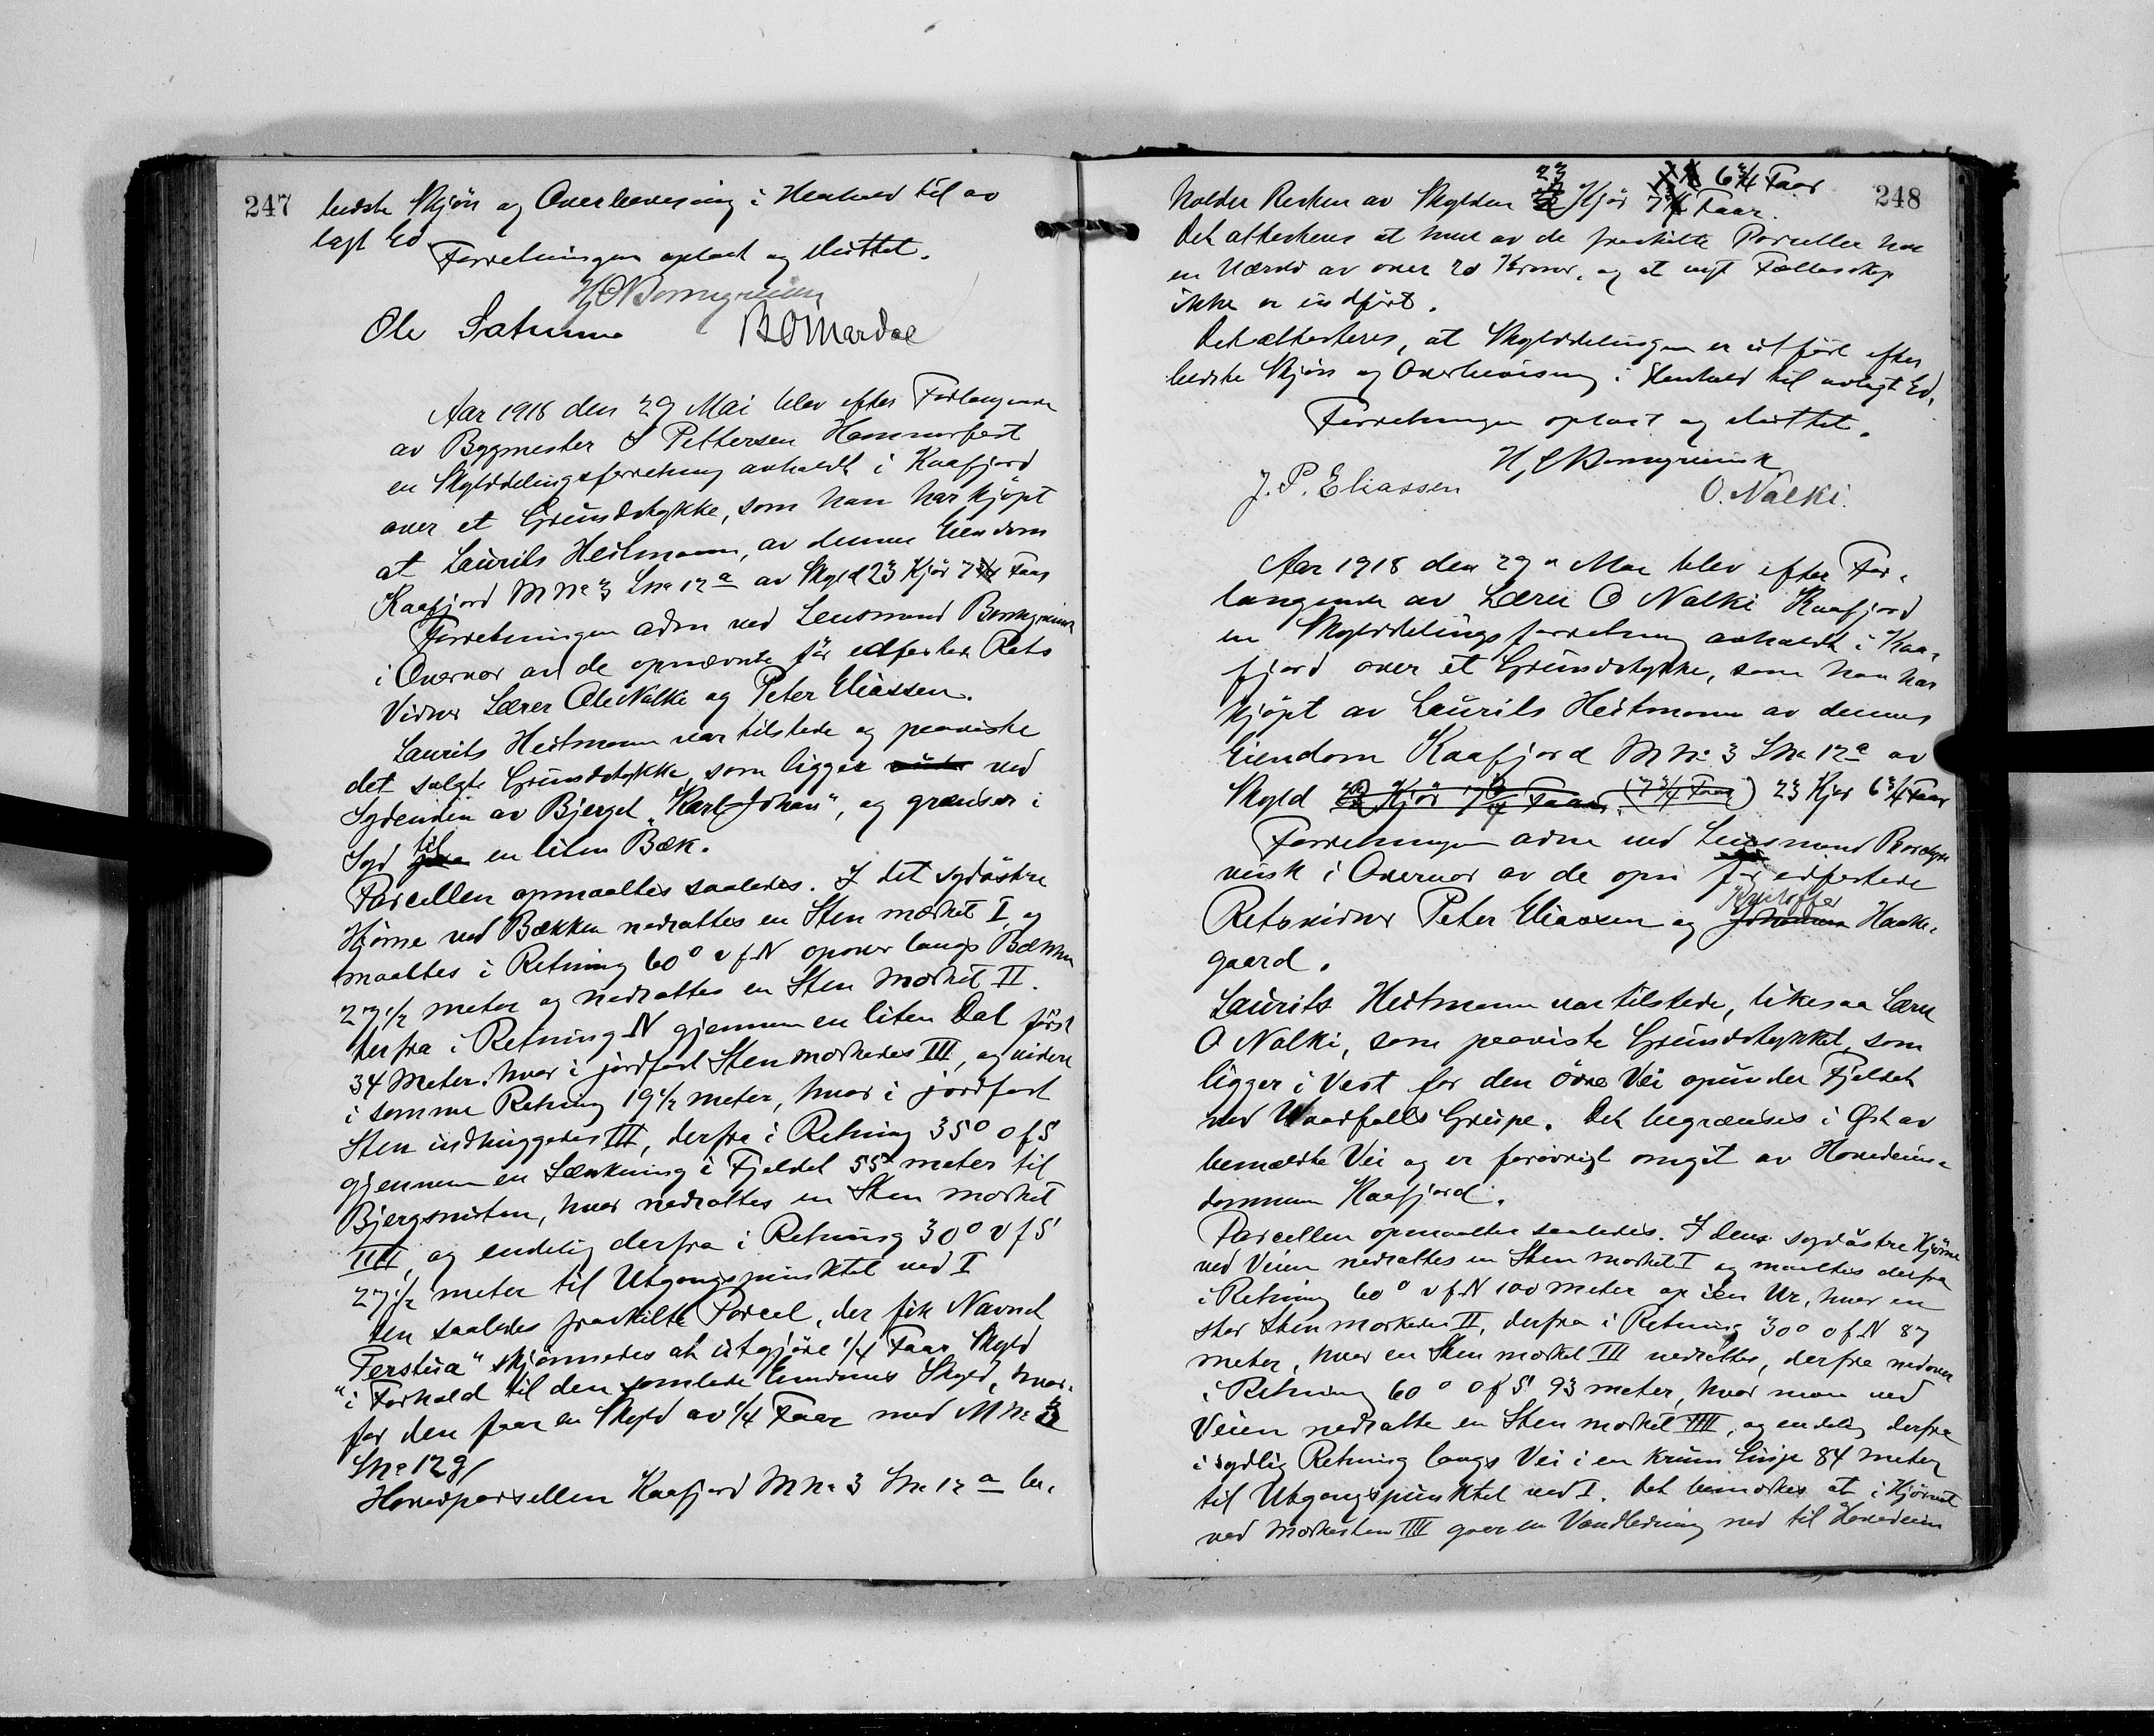 247
bedste Skjøn og Overbevisning i Henhold til av
lagt Ed.
Forretningen oplæst og sluttet.
Ole
B O Mardal
Aar 1918 den 29 Mai blev efter Forlangende
av Bygmester S Pettersen Hammerfest
en Skylddelingsforretning avholdt i Kaafjord
over et Grundstykke, som han har kjøpt
at Laurits Heitmann, av dennes Eiendom
Kaafjord M No 3 L No 12a av Skyld 23 Kjør 7 3/4 Faar
Forretningen adm ved Lensmand
i Overvær av de opnævnte før edfestede Rets
Vidner Lærer Ole Nalki og Peter Eliassen.
Laurits Heitmann var tilstede og paaviste
det solgte Grundstykke, som ligger ved
Sydenden av Bjerget "Karl Johan", og grænser i
Syd til en liten Bæk.
Parcellen opmaaltes saaledes. I det sydøstre
Hjørne ved Bækken nedsattes en Sten mærket I, og
maaltes i Retning 60° v f N opover langs Bækken
27 1/2 meter og nedsattes en Sten mærket II.
derfra i Retning N gjennem en liten Dal først
34 Meter. hvor i jordfast Sten mærkedes III, og videre
i samme Retning 19 1/2 meter, hvor i jordfast
Sten indhuggedes III, derfra i Retning 35° o f S
gjennem en Sænkning i Fjeldet 55 meter til
Bjergsnuten, hvor nedsattes en Sten mærket
IIII, og endelig derfra i Retning 30° v f S
27 1/2 meter til Utgangspunktet ved I
Den saaledes fraskilte Parcel, der fik Navnet
"Perstua" skjønnedes at utgjøre 1/4 Faar Skyld
i Forhold til den samlede Eiendoms Skyld, hvor-
for den faar en Skyld av 1/4 Faar med M No 3
L No 12g/
Hovedparsellen Kaafjord M No 3 L No 12a be-
248
23 6 3/4 Faar
holder Resten av Skylden Kjør 7 3/4 Faar.
Det attesteres at hver av de fraskilte Parceller har
en Værdi av over 20 Kroner, og at nyt Fællesskap
ikke er indført.
Det attesteres, at Skylddelingen er utført efter
bedste Skjøn og Overbevisning i Henhold til avlagt Ed.
Forretningen oplæst og sluttet.
J. P. Eliassen
O. Nalki.
Aar 1918 den 29 Mai blev efter For-
langende av Lærer O Nalki Kaafjord
en Skylddelingsforretning avholdt i Kaa-
fjord over et Grundstykke, som han har
kjøpt av Laurits Heitmann av dennes
Eiendom Kaafjord M No 3 L No 12a av
Skyld 23 Kjør 7 3/4 Faar. (7 3/4 Faar) 23 Kjør 6 3/4 Faar
Forretningen adm ved Lensmand
i Overvær av de opn før edfestede
Kristoffer
Retsvidner Peter Eliassen og Johannes Hauke-
gaard.
Laurits Heitmann var tilstede, likesaa Lærer
O Nalki, som paaviste Grundstykket, som
ligger i Vest for den øvre Vei opunder Fjeldet
ved Vaadfalls Grupe. Det begrænses i Øst av
bemeldte Vei og er forøvrigt omgit av Hovedeien-
dommen Kaafjord.
Parcellen opmaaltes saaledes. I dens sydøstre Hjørne
ved Veien nedsattes en Sten mærket I og maaltes derfra
i Retning 60° v f N 100 meter op i en Ur, hvor en
stor Sten mærkedes II, derfra i Retning 30° o f N 87
meter, hvor en Sten mærket III nedsattes, derfra nedover
i Retning 60° o f S 93 meter, hvor man ved
Veien nedsatte en Sten mærket IIII, og endelig derfra
i sydlig Retning langs Vei i en krum Linje 84 meter
til Utgangspunktet ved I. Det bemærkes at i Hjørnet
ved Mærkesten IIII gaar en Vandledning ned til Hovedeien